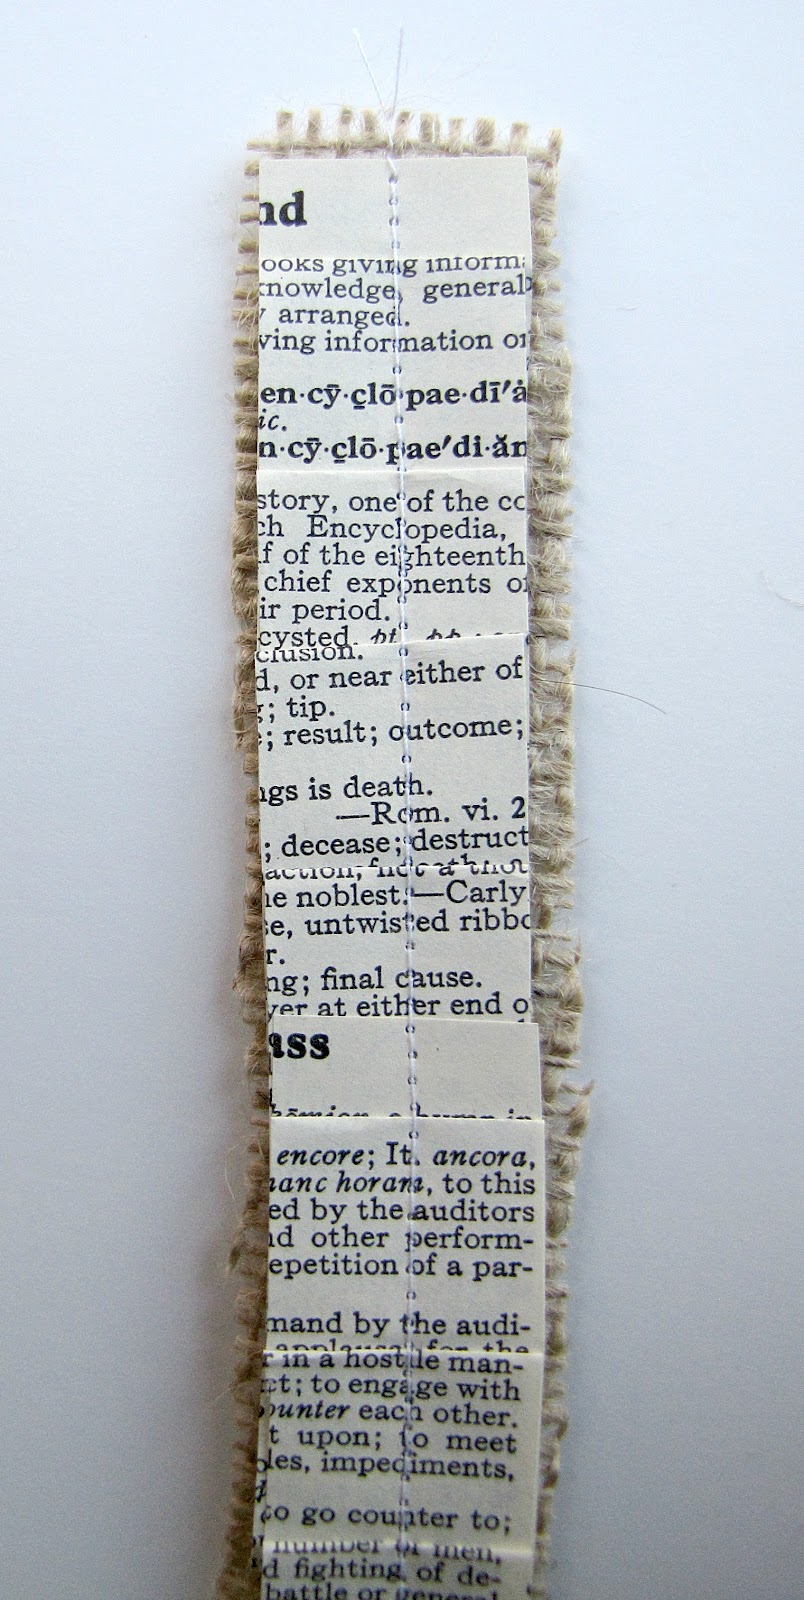 nd
ooks giving inform
nowledge, general
y arranged.
ving information on
en·cȳ·clō·pae·dī′ȧ
ic.
n·cȳ·clō·pae′di·ăn
story, one of the co
ch Encyclopedia,
lf of the eighteenth
chief exponents of
ir period.
cysted,
clusion.
d, or near either of
g; tip.
e; result; outcome;
ngs is death.
—Rom. vi. 2
; decease; destruct
action, not a thou
he noblest.—Carly
se, untwisted ribbo
r.
ng; final cause.
yer at either end o
ass
a hump in
encore; It. ancora,
hanc horam, to this
ed by the auditors
nd other perform-
epetition of a par-
mand by the audi-
applause, for the
r in a hostile man-
ct; to engage with
ounter each other.
t upon; to meet
les, impediments,
d
to go counter to;
number of men,
d fighting of de-
battle or general